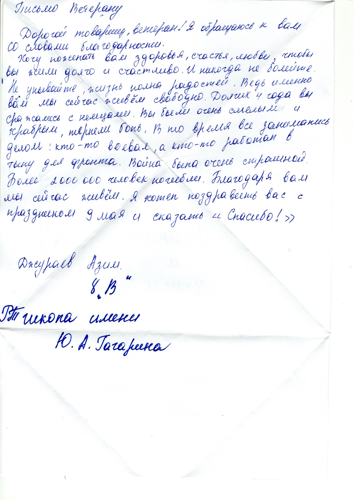 Письмо Ветерану
Дорогой товарищ, ветеран! Я обращаюсь к вам
со словами благодарности.
Хочу пожелать вам здоровья, счастья, любви, чтобы
вы жили долго и счастливо. И никогда не болейте.
Не унывайте, жизнь полна радостей. Ведь именно
вами мы сейчас живём свободно. Долгих 4 года вы
сражались с немцами. Вы были очень смелыми и
храбрыми, терпели боль. В то время все занимались
делом: кто-то воевал, а кто-то работал в
тылу для фронта. Война была очень страшной
Более 2000 000 человек погибли. Благодаря вам
мы сейчас живём. Я хотел поздравить вас с
праздником 9 мая и сказать Спасибо!»
Джураев Азим.
8 "В"
школа имени
Ю. А. Гагарина